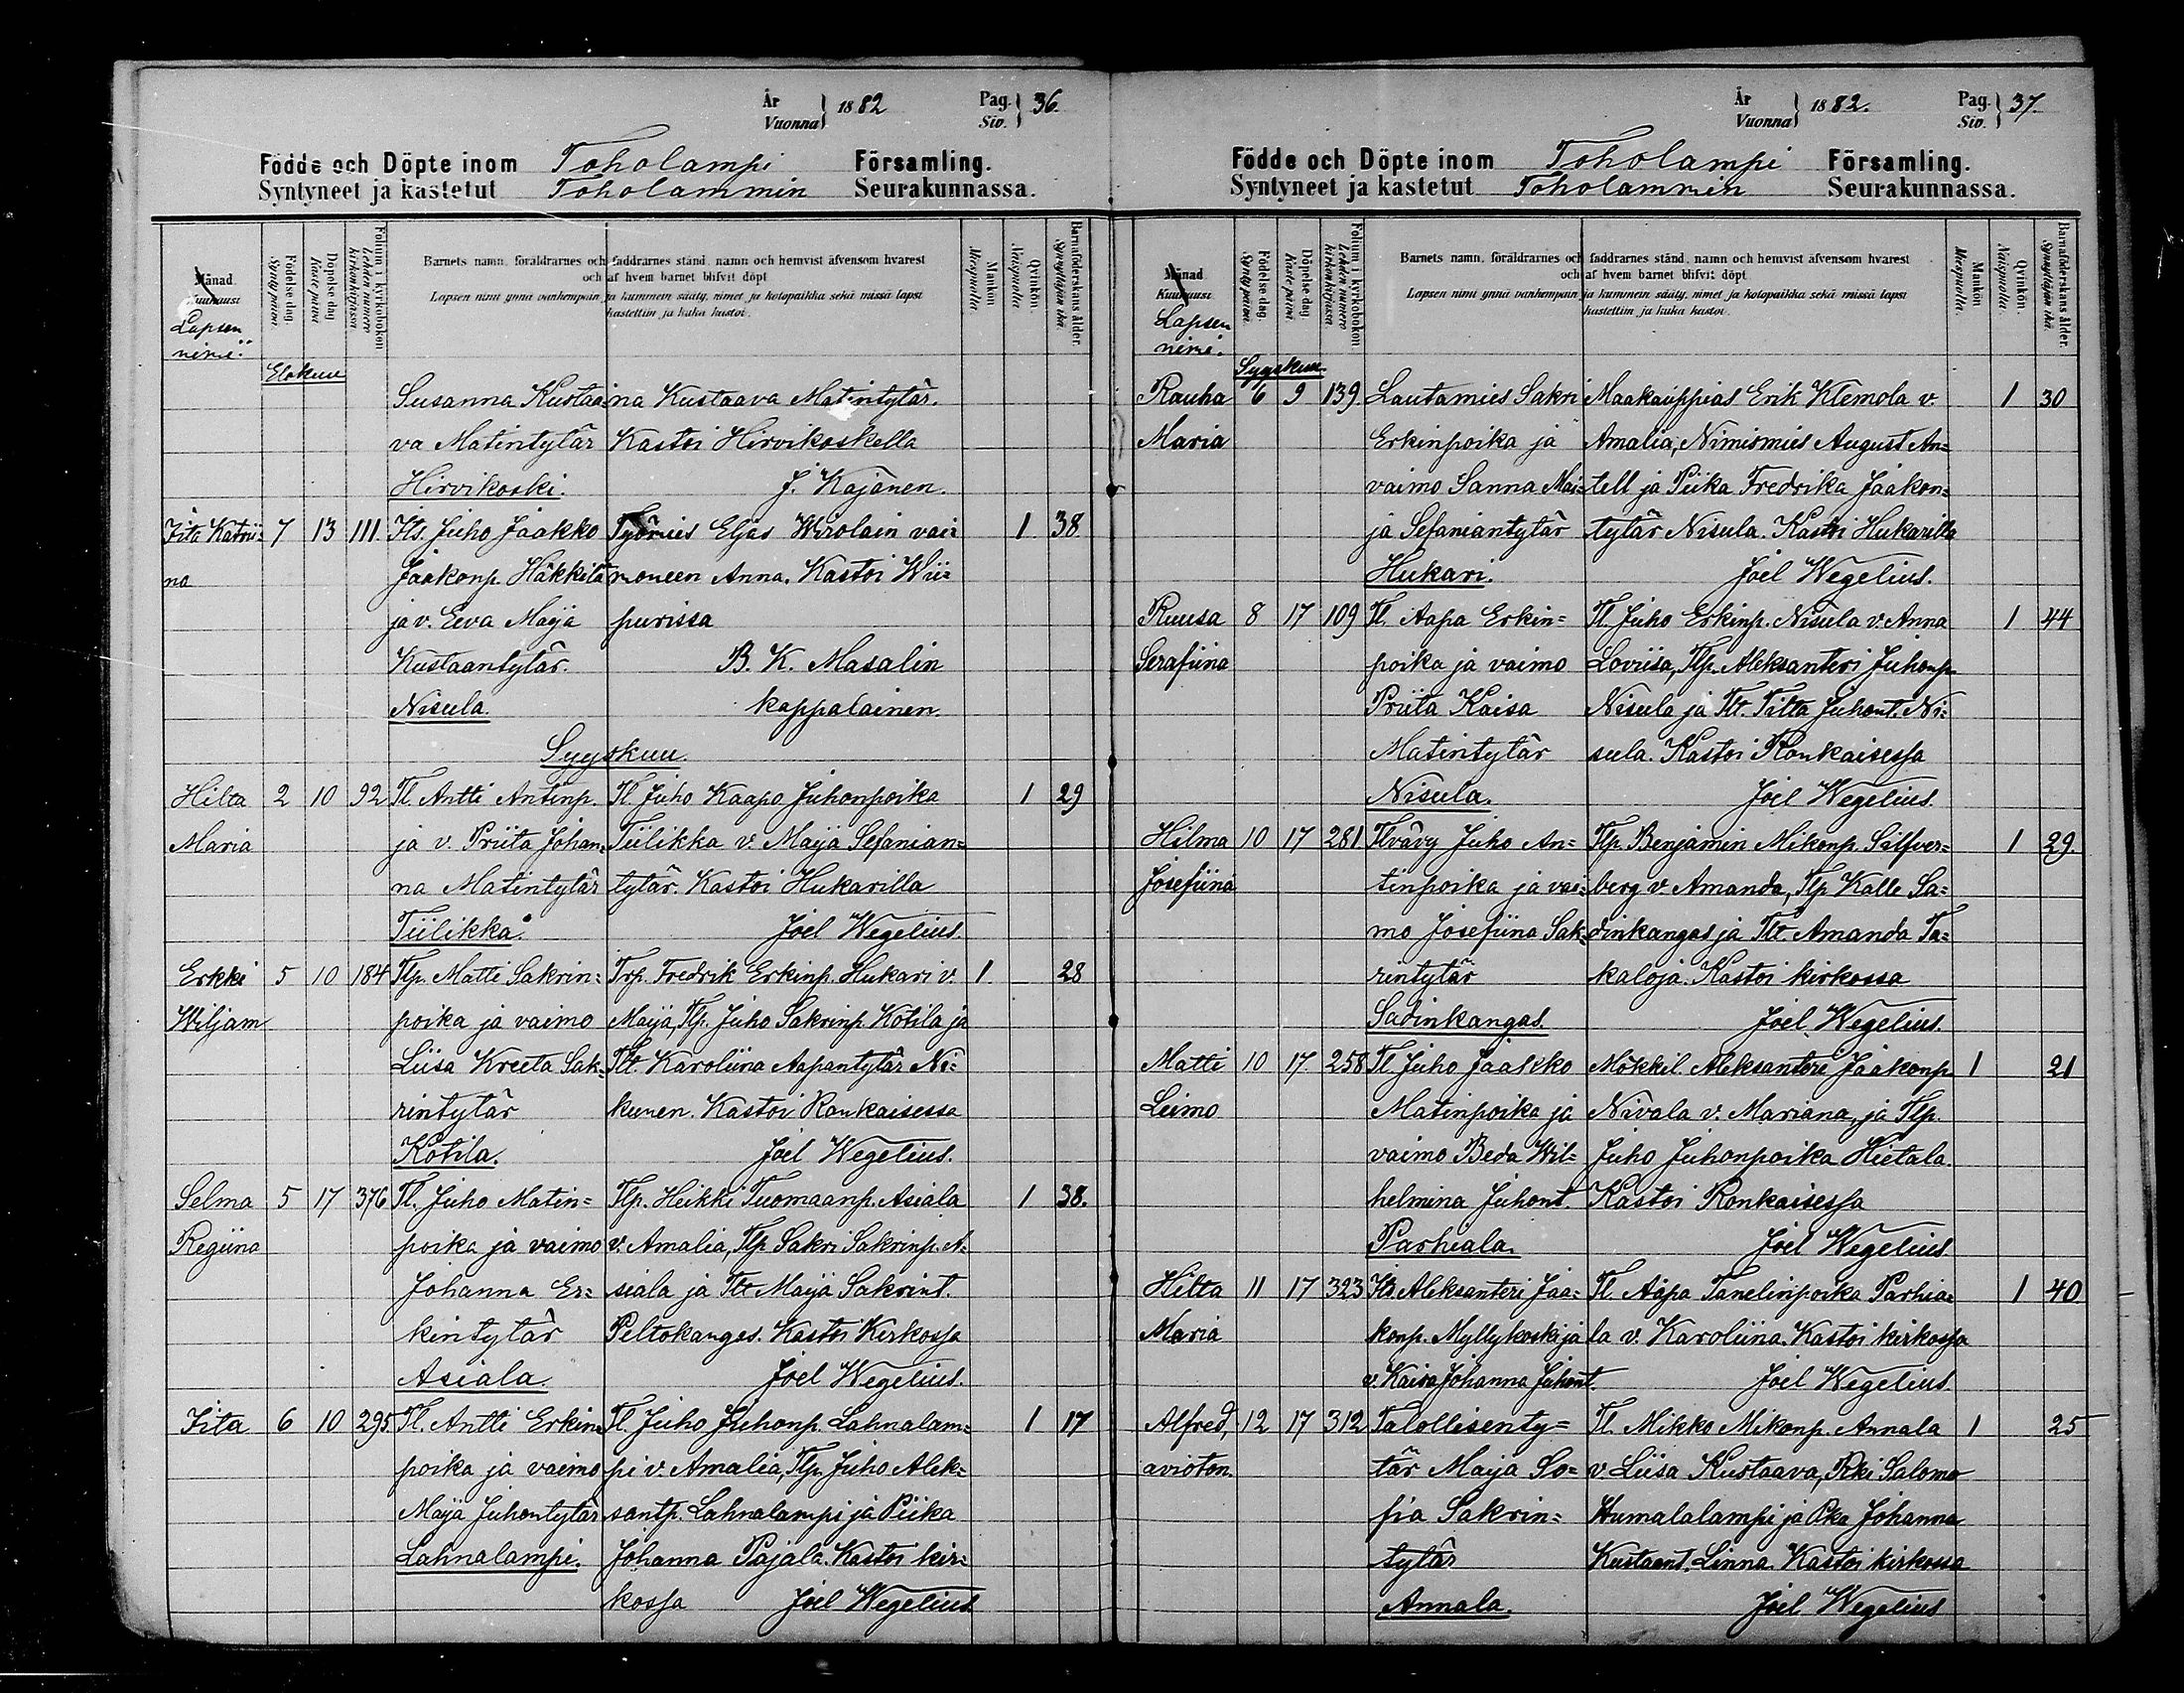 År
Vuonna } 1882
Pag.
Siv. } 36.
Födde och Döpte inom Toholampi Församling.
Syntyneet ja kastetut Toholammin Seurakunnassa.
Månad
Kuukausi
Lapsen
nimi.
Födelse dag.
Synty päivä.
Döpelse dag
Kaste päivä
Folium i kyrkoboken
Lehden numero
kirkonkirjassa
Barnets namn, föräldrarnes och faddrarnes stånd, namn och hemvist äfvensom hvarest
och af hvem barnet blifvit döpt
Lapsen nimi ynnä vanhempain ja kummein sääty, nimet ja kotopaikka sekä missä lapsi
kastettiin ja kuka kastoi.
Mankön
Miespuolia.
Qvinkön.
Naispuolia.
Barnaföderskans ålder.
Synnyttäjän ikä.
Elokuu
Susanna Kustaa- na Kustaava Matintytär.
va Matintytär Kastoi Hirvikoskella
Hirvikoski. J. Kajanen.
Iita Katrii- 7 13 111. Its. Juho Jaakko Työmies Eljas Wirolain vai- 1 38
na Jaakonp. Häkkilä moneen Anna. Kastoi Wii-
ja v. Eeva Maija purissa
Kustaantytär. B. K. Masalin
Nisula. kappalainen.
Syyskuu.
Hilta 2 10 92 Tl Antti Antinp. Tl Juho Kaapo Juhonpoika 1 29
Maria ja v. Priita Johan- Tiilikka v. Maija Sefanian-
na Matintytär tytär. Kastoi Hukarilla
Tiilikka. Joel Wegelius.
Erkki 5 10 184 Tlp. Matti Sakrin- Trp. Fredrik Erkinp. Hukari v. 1. 28
Wiljam poika ja vaimo Maija, Tlp. Juho Sakrinp. Kotila ja
Liisa Kreeta Sak- Tlt. Karoliina Aapantytär Ni-
rintytär kunen. Kastoi Ronkaisessa
Kotila. Joel Wegelius.
Selma 5 17 376 Tl. Juho Matin- Tlp. Heikki Tuomaanp. Asiala 1 38.
Regiina poika ja vaimo v. Amalia, Tlp Sakri Sakrinp. A-
Johanna Er- siala ja Tlt Maija Sakrint.
kintytär Peltokangas. Kastoi Kirkossa
Asiala. Joel Wegelius.
Iita 6 10 295. Tl. Antti Erkin- Tl. Juho Juhonp. Lahnalam- 1 17
poika ja vaimo pi v. Amalia, Tlp. Juho Alek-
Maija Juhontytär santp. Lahnalampi ja Piika
Lahnalampi. Johanna Pajala. Kastoi kir-
kossa Joel Wegelius
År
Vuonna } 1882.
Pag.
Siv. } 37.
Födde och Döpte inom Toholampi Församling.
Syntyneet ja kastetut Toholammin Seurakunnassa.
Månad
Kuukausi
Lapsen
nimi.
Födelse dag.
Synty päivä.
Döpelse dag.
Kaste päivä
Folium i kyrkoboken.
Lehden numero
kirkonkirjassa
Barnets namn, föräldrarnes och faddrarnes stånd, namn och hemvist äfvensom hvarest
och af hvem barnet blifvit döpt
Lapsen nimi ynnä vanhempain ja kummein sääty, nimet ja kotopaikka sekä missä lapsi
kastettiin ja kuka kastoi.
Mankön
Miespuolia.
Qvinkön.
Naispuolia.
Barnaföderskans ålder.
Synnyttäjän ikä.
Syyskuu.
Rauha 6 9 139. Lautamies Sakri Maakauppias Erik Klemola v. 1 30
Maria Erkinpoika ja Amalia, Nimismies August An-
vaimo Sanna Mai- tell ja Piika Fredrika Jaakon-
ja Sefaniantytär tytär Nisula. Kastoi Hukarilla
Hukari. Joel Wegelius.
Ruusa 8 17 109 Tl. Aapa Erkin- Tl. Juho Erkinp. Nisula v. Anna 1 44
Serafiina poika ja vaimo Loviisa, Tlp. Aleksanteri Juhonp.
Priita Kaisa Nisula ja Tlt. Titta Juhont. Ni-
Matintytär sula. Kastoi Ronkaisessa
Nisula. Joel Wegelius.
Hilma 10 17 281 Tlvävy Juho An- Tlp. Benjamin Mikonp. Silfver- 1 29.
Josefiina tinpoika ja vai- berg v. Amanda, Tlp Kalle Sa-
mo Josefiina Sak- dinkangas ja Tlt. Amanda Ta-
rintytär kaloja. Kastoi kirkossa
Sadinkangas. Joel Wegelius.
Matti 10 17. 258 Tl. Juho Jaakko Mökkil. Aleksanteri Jaakonp. 1 21
Leimo Matinpoika ja Nivala v. Mariana, ja Tlp.
vaimo Beda Wil- Juho Juhonpoika Hietala.
helmina Juhont. Kastoi Ronkaisessa
Parhiala. Joel Wegelius.
Hilta 11 17 323 Its Aleksanteri Jaa- Tl. Aapa Tanelinpoika Parhia- 1 40.
Maria konp. Myllykoski ja la v. Karoliina. Kastoi kirkossa
v. Kaisa Johanna Juhont. Joel Wegelius.
Alfred, 12 17 312 Talollisenty- Tl. Mikko Mikonp. Annala 1 25
avioton. tär Maija So- v Liisa Kustaava, Rki Salomo
fia Sakrin- Humalalampi ja Pka Johanna
tytär Kustaant. Linna. Kastoi kirkossa
Annala. Joel Wegelius